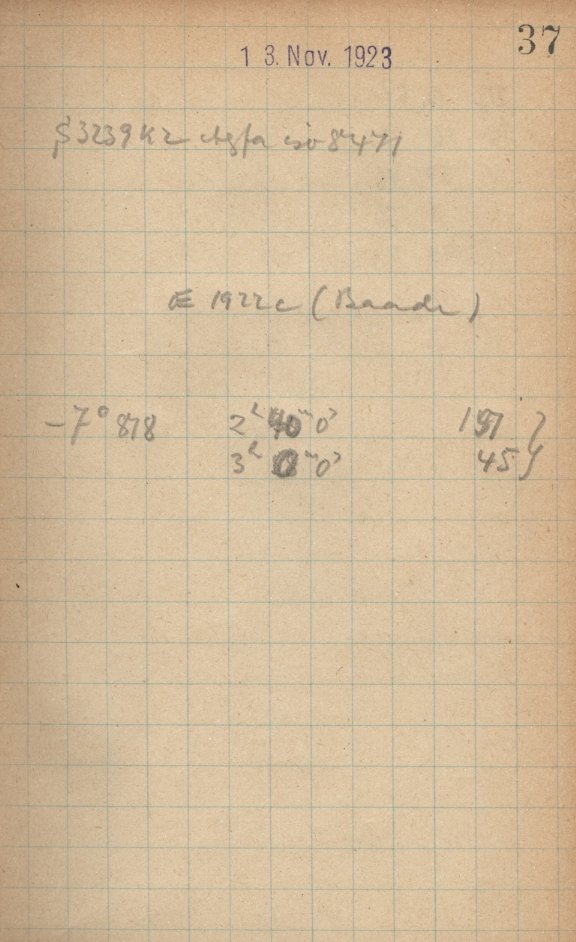 37
13. Nov. 1923
S3239 K2 Agfa iso 8471
1922c (Baade)
-7° 878 2h 40m 0s 197 }
3h 0m 0s 45 }